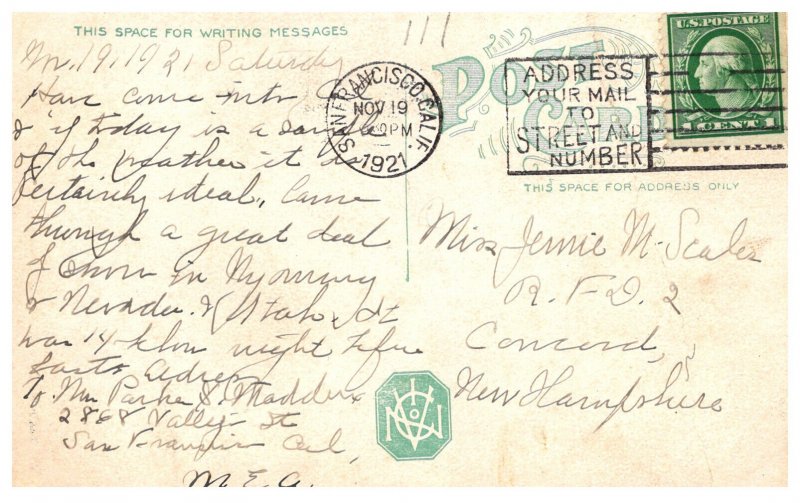 THIS SPACE FOR WRITING MESSAGES
POST CARD
SAN FRANCISCO, CALIF.
NOV 19
PM
1921
ADDRESS
YOUR MAIL
TO
STREET AND
NUMBER
U.S. POSTAGE
1 CENT 1
THIS SPACE FOR ADDRESS ONLY
19, 1921 Saturday
Have come into
& if today is a
of the weather it is
certainly ideal, Came
through a great deal
of snow in Wyoming
& Nevada & Utah. It
was 14 below night before
last. Address
To Mrs Parke S. Maddux
2868 Vallejo St
San Francisco Cal,
M. E. A.
Miss Jennie M. Scales
R. F. D. 2
Concord,
New Hampshire